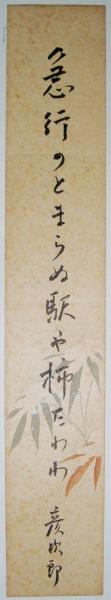 急行のとまらぬ駅や柿たわわ
彦次郎